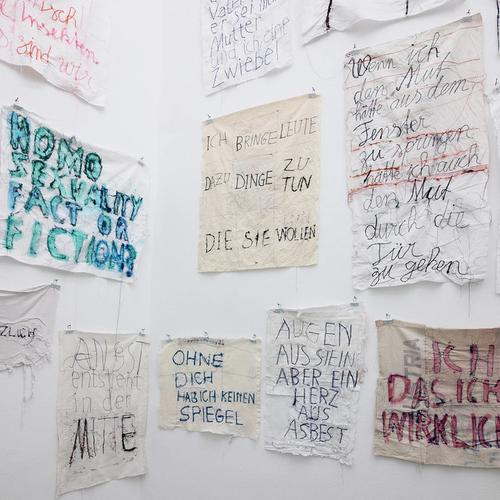 Insekten
sind wir
Vater
er sei mein
Mutter
und ich eine
Zwiebel
HOMO
SEXUALITY
FACT OR
FICTION?
ICH BRINGE LEUTE
DAZU DINGE ZU
TUN
DIE SIE WOLLEN
Wenn ich
den Mut
hätte aus dem
Fenster
zu springen
hätte ich auch
den Mut
durch die
Tür
zu gehen
ZLICH
ANGST
entsteht
in der
MITTE
OHNE
DICH
HAB ICH KEINEN
SPIEGEL
AUGEN
AUS STEIN
ABER EIN
HERZ
AUS
ASBEST
TRIA
ICH
DAS ICH
WIRKLICH